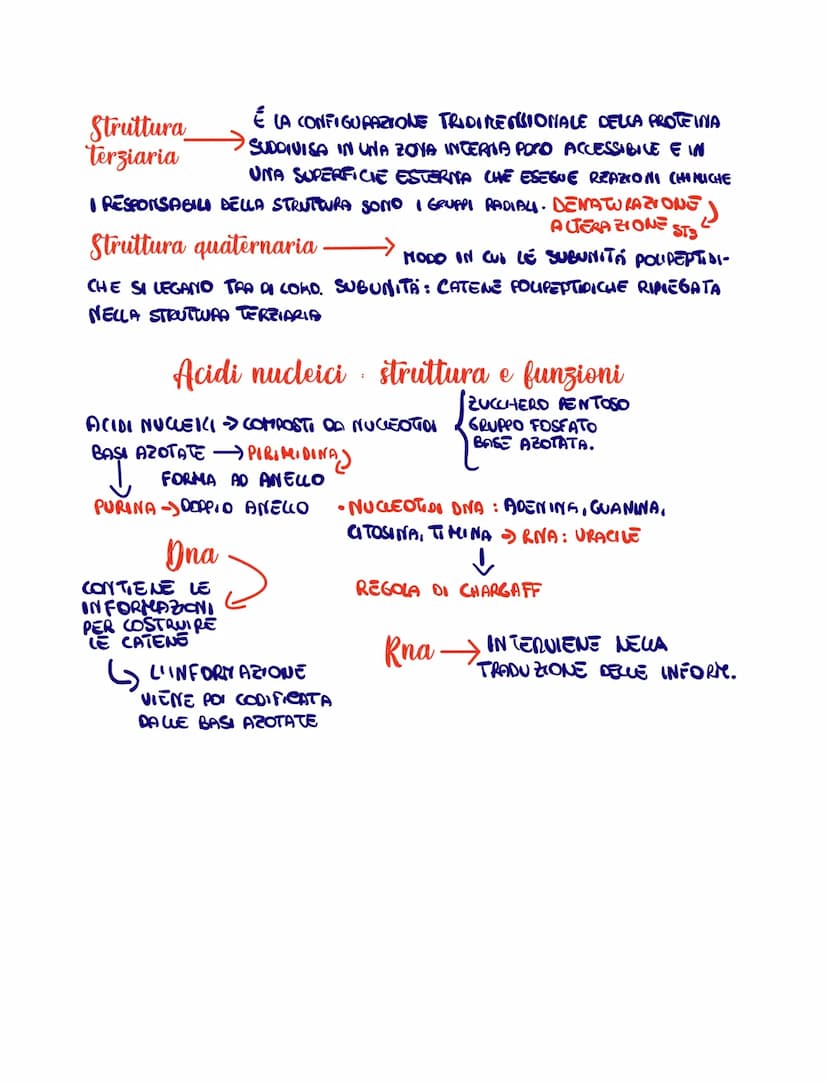 Struttura terziaria → É LA CONFIGURAZIONE TRIDIMENSIONALE DELLA PROTEINA
SUDDIVISA IN UNA ZONA INTERNA POCO ACCESSIBILE E IN
UNA SUPERFICIE ESTERNA CHE ESEGUE REAZIONI CHIMICHE
I RESPONSABILI DELLA STRUTTURA SONO I GRUPPI RADIALI. DENATURAZIONE
ALTERAZIONE ST3
Struttura quaternaria → MODO IN CUI LE SUBUNITÁ POLIPEPTIDI-
CHE SI LEGANO TRA DI LORO. SUBUNITÁ: CATENE POLIPEPTIDICHE RIPIEGATA
NELLA STRUTTURA TERZIARIA
Acidi nucleici : struttura e funzioni
ACIDI NUCLEICI → COMPOSTI DA NUCLEOTIDI
ZUCCHERO PENTOSO
GRUPPO FOSFATO
BASE AZOTATA.
BASI AZOTATE → PIRIMIDINA
FORMA AD ANELLO
PURINA → DOPPIO ANELLO
• NUCLEOTIDI DNA : ADENINA, GUANINA,
CITOSINA, TIMINA → RNA: URACILE
REGOLA DI CHARGAFF
Dna
CONTIENE LE
INFORMAZIONI
PER COSTRUIRE
LE CATENE
L'INFORMAZIONE
VIENE POI CODIFICATA
DALLE BASI AZOTATE
Rna → INTERVIENE NELLA
TRADUZIONE DELLE INFORM.